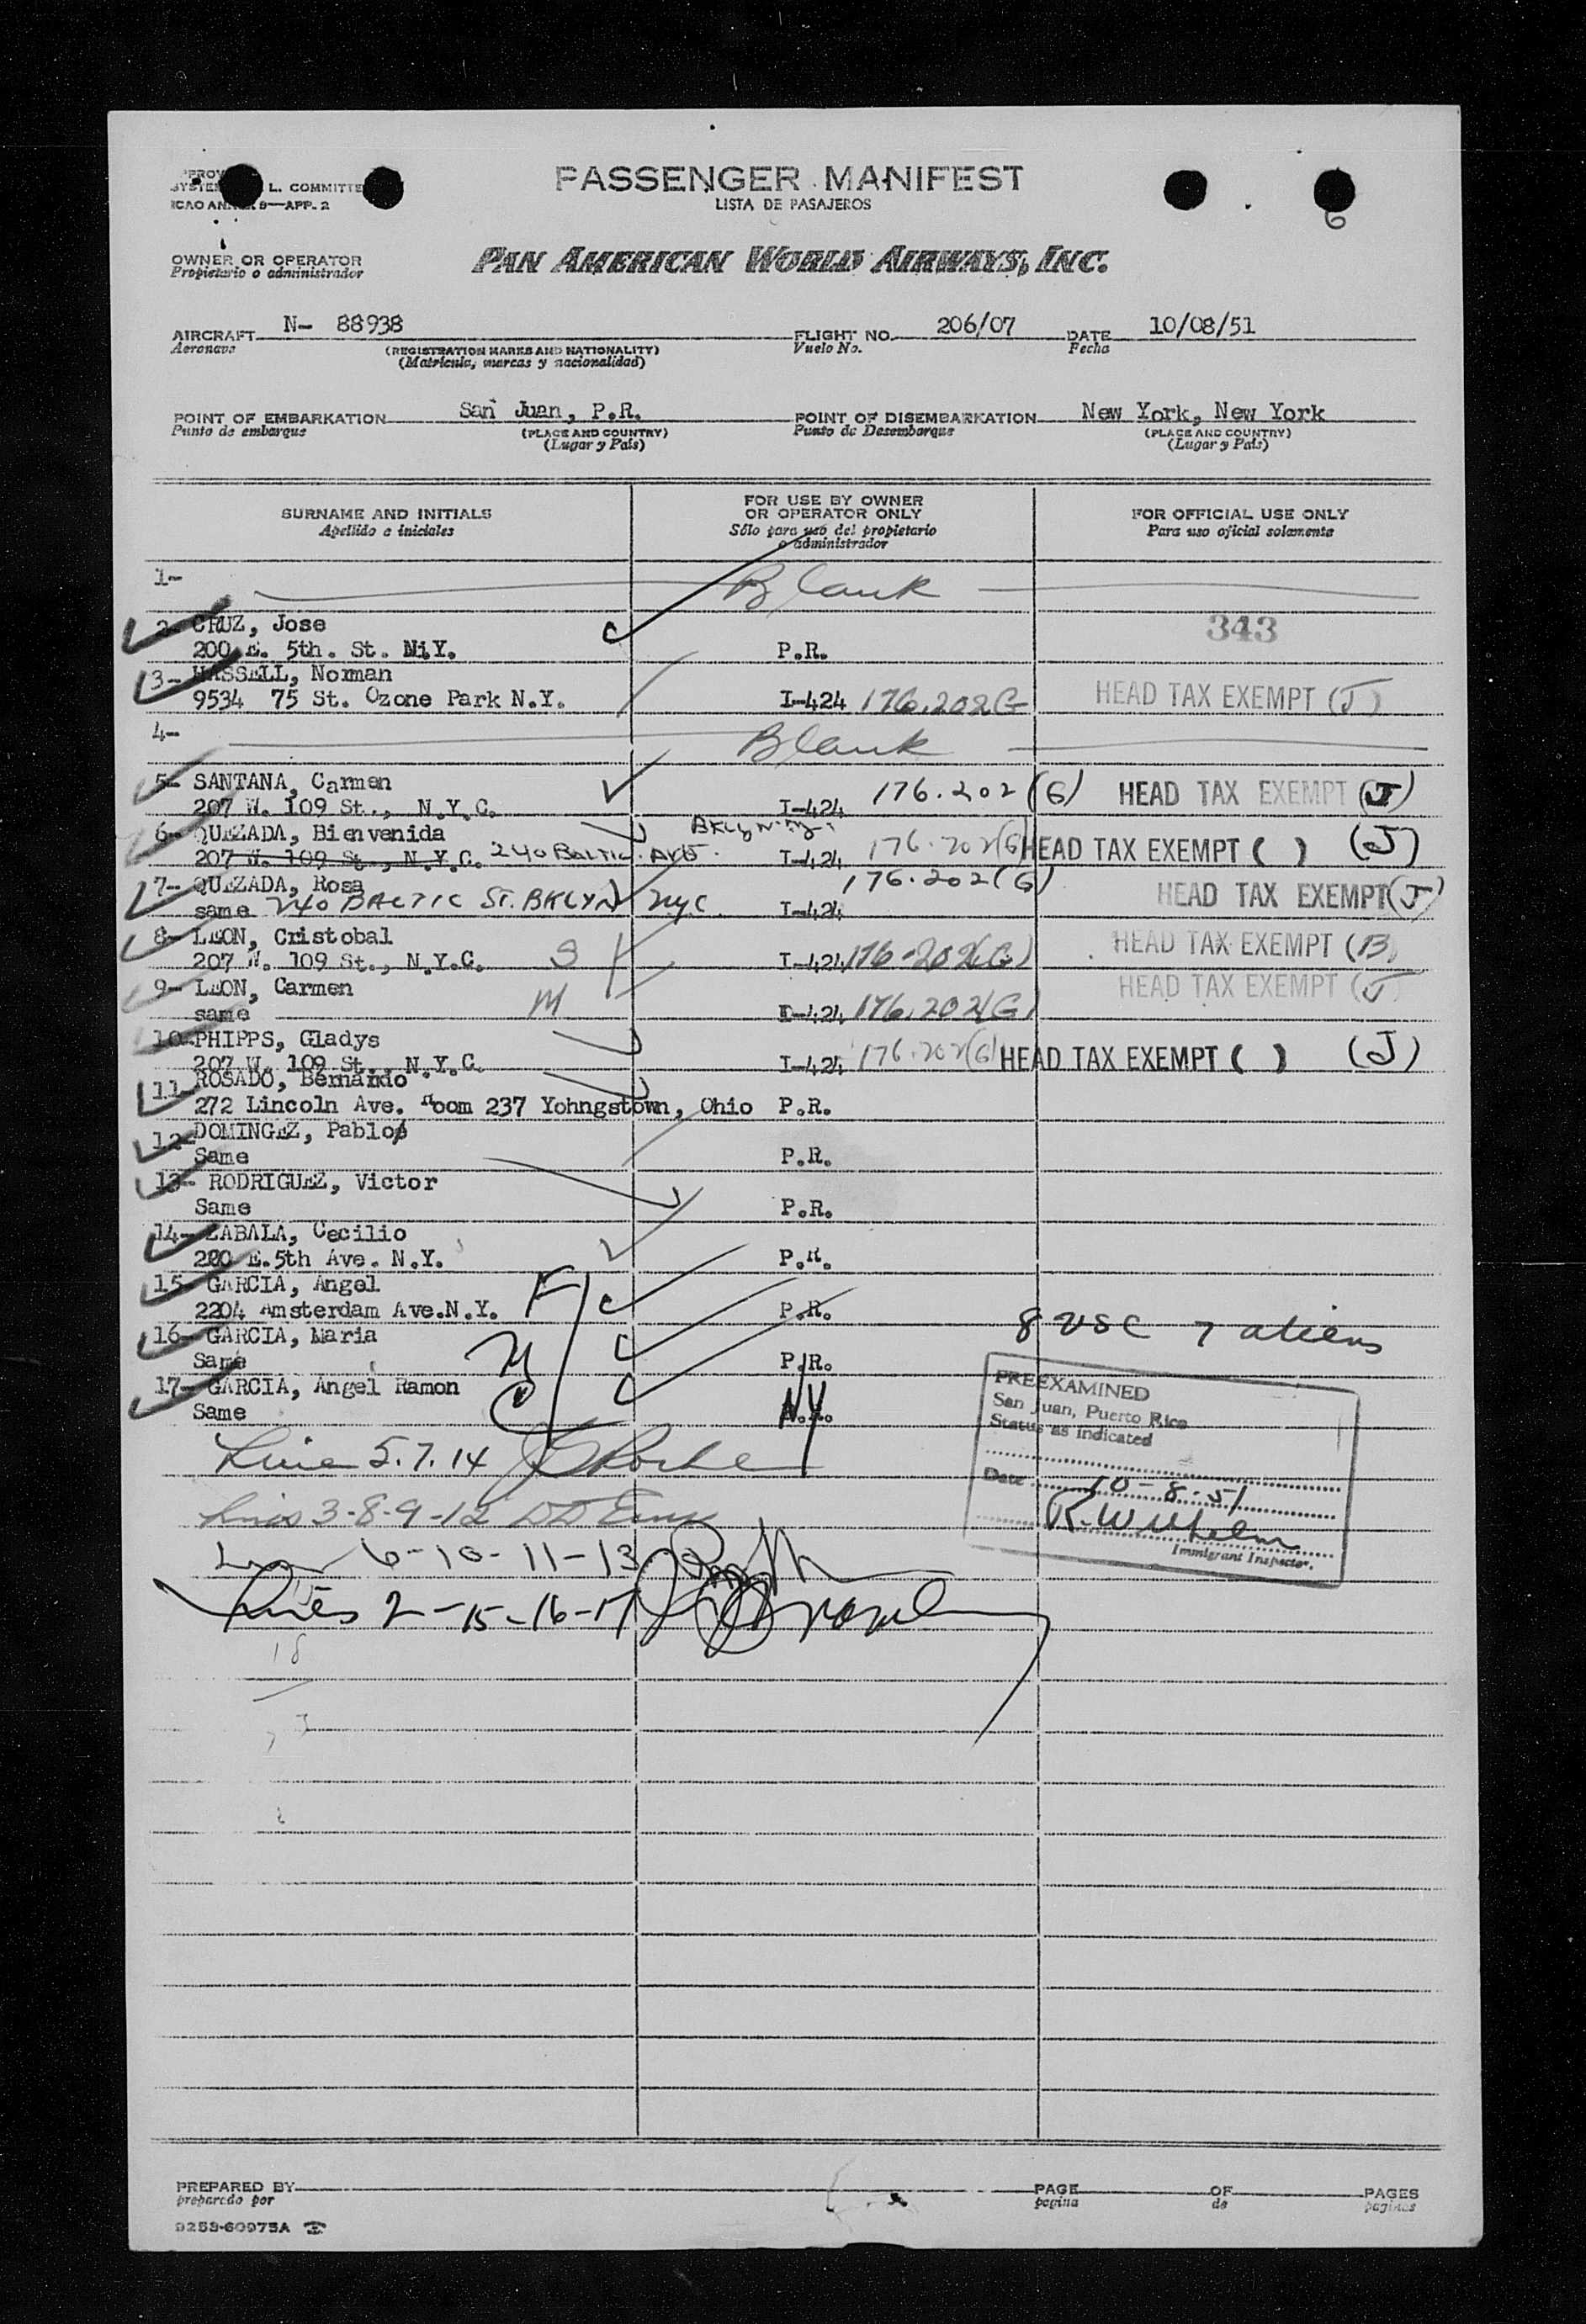 PASSENGER MANIFEST
LISTA DE PASAJEROS
L. COMMITTE
ICAO AN. 9—APP. 2
6
OWNER OR OPERATOR
Propietario o administrador
PAN AMERICAN WORLD AIRWAYS, INC.
AIRCRAFT N- 88938 FLIGHT NO. 206/07 DATE 10/08/51
Aeronave (REGISTRATION MARKS AND NATIONALITY) Vuelo No. Fecha
(Matricula, marcas y nacionalidad)
POINT OF EMBARKATION San Juan, P.R. POINT OF DISEMBARKATION New York, New York
Punto de embarque (PLACE AND COUNTRY) Punto de Desembarque (PLACE AND COUNTRY)
(Lugar y País) (Lugar y País)
SURNAME AND INITIALS FOR USE BY OWNER OR OPERATOR ONLY FOR OFFICIAL USE ONLY
Apellido e iniciales Sólo para uso del propietario o administrador Para uso oficial solamente
1- Blank
2- CRUZ, Jose 343
200 E. 5th. St. N.Y. P.R.
3- HASSELL, Norman
9534 75 St. Ozone Park N.Y. I-424 176.202G HEAD TAX EXEMPT (J)
4- Blank
5- SANTANA, Carmen 176.202 (G) HEAD TAX EXEMPT (J)
207 W. 109 St., N.Y.C. I-424
6- QUEZADA, Bienvenida BKLYN N.Y.
207 W. 109 St., N.Y.C. 240 BALTIC AVE. I-424 176.202(G) HEAD TAX EXEMPT ( ) (J)
7- QUEZADA, Rosa 176.202(G) HEAD TAX EXEMPT (J)
same 240 BALTIC ST. BKLYN NYC I-424
8- LEON, Cristobal HEAD TAX EXEMPT (B)
207 W. 109 St., N.Y.C. S I-424 176-202(G)
9- LEON, Carmen HEAD TAX EXEMPT (J
same M I-424 176.202(G)
10- PHIPPS, Gladys
207 W. 109 St. N.Y.C. I-424 176.202(G) HEAD TAX EXEMPT ( ) (J)
11- ROSADO, Bernando
272 Lincoln Ave. Room 237 Yohngstown, Ohio P.R.
12- DOMINGEZ, Pablo
Same P.R.
13- RODRIGUEZ, Victor
Same P.R.
14- ZABALA, Cecilio
200 E.5th Ave. N.Y. P.R.
15- GARCIA, Angel
2204 Amsterdam Ave.N.Y. F P.R.
16- GARCIA, Maria 8 USC 7 aliens
Same M P.R.
17- GARCIA, Angel Ramon
Same C N.Y.
PREEXAMINED
San Juan, Puerto Rico
Status as indicated
Date 10-8-51
R. Wilhelm
Immigrant Inspector.
Line 5.7.14
Lines 3-8-9-12
6-10-11-13
Lines 2-15-16-17
18
PREPARED BY PAGE OF PAGES
preparado por pagina de paginas
9253-60975A